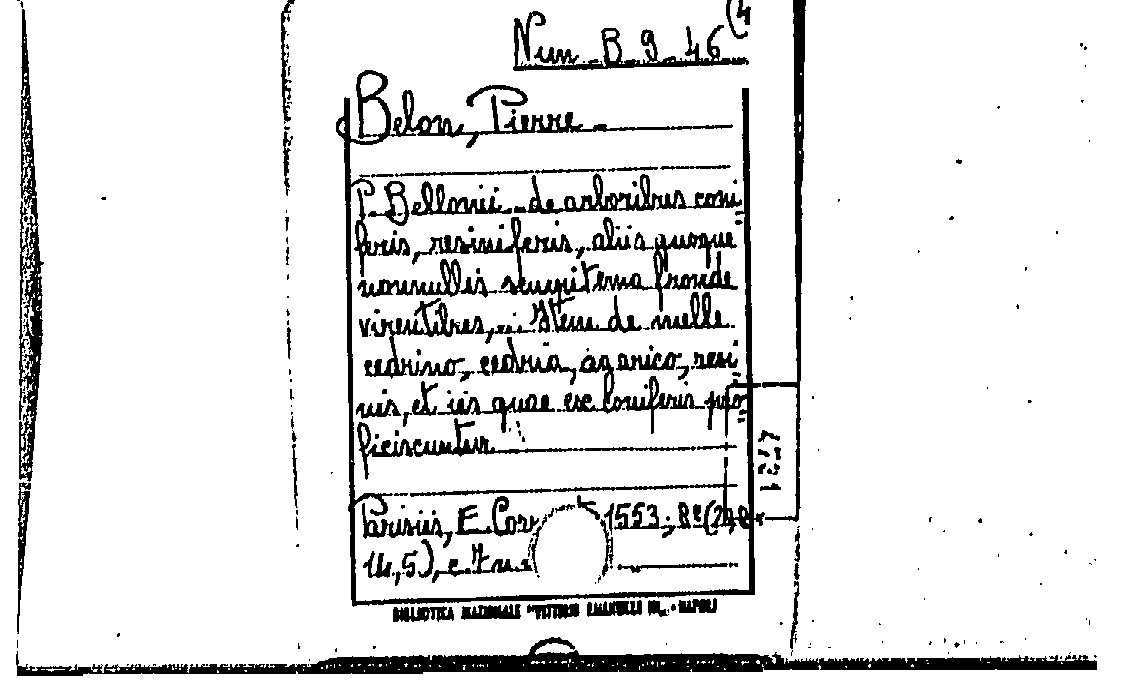 Num B 9 46 (4
Belon, Pierre
P. Bellonii de arboribus coni=
feris, resiniferis, aliis quoque
nonnullis sempiterna fronde
virentibus, ... Item de melle
cedrino, cedria, agarico, resi=
nis, et iis quae ex coniferis pro=
ficiscuntur
Parisiis, E. 1553; 8º
BIBLIOTECA NAZIONALE "VITTORIO EMANUELE III" - NAPOLI